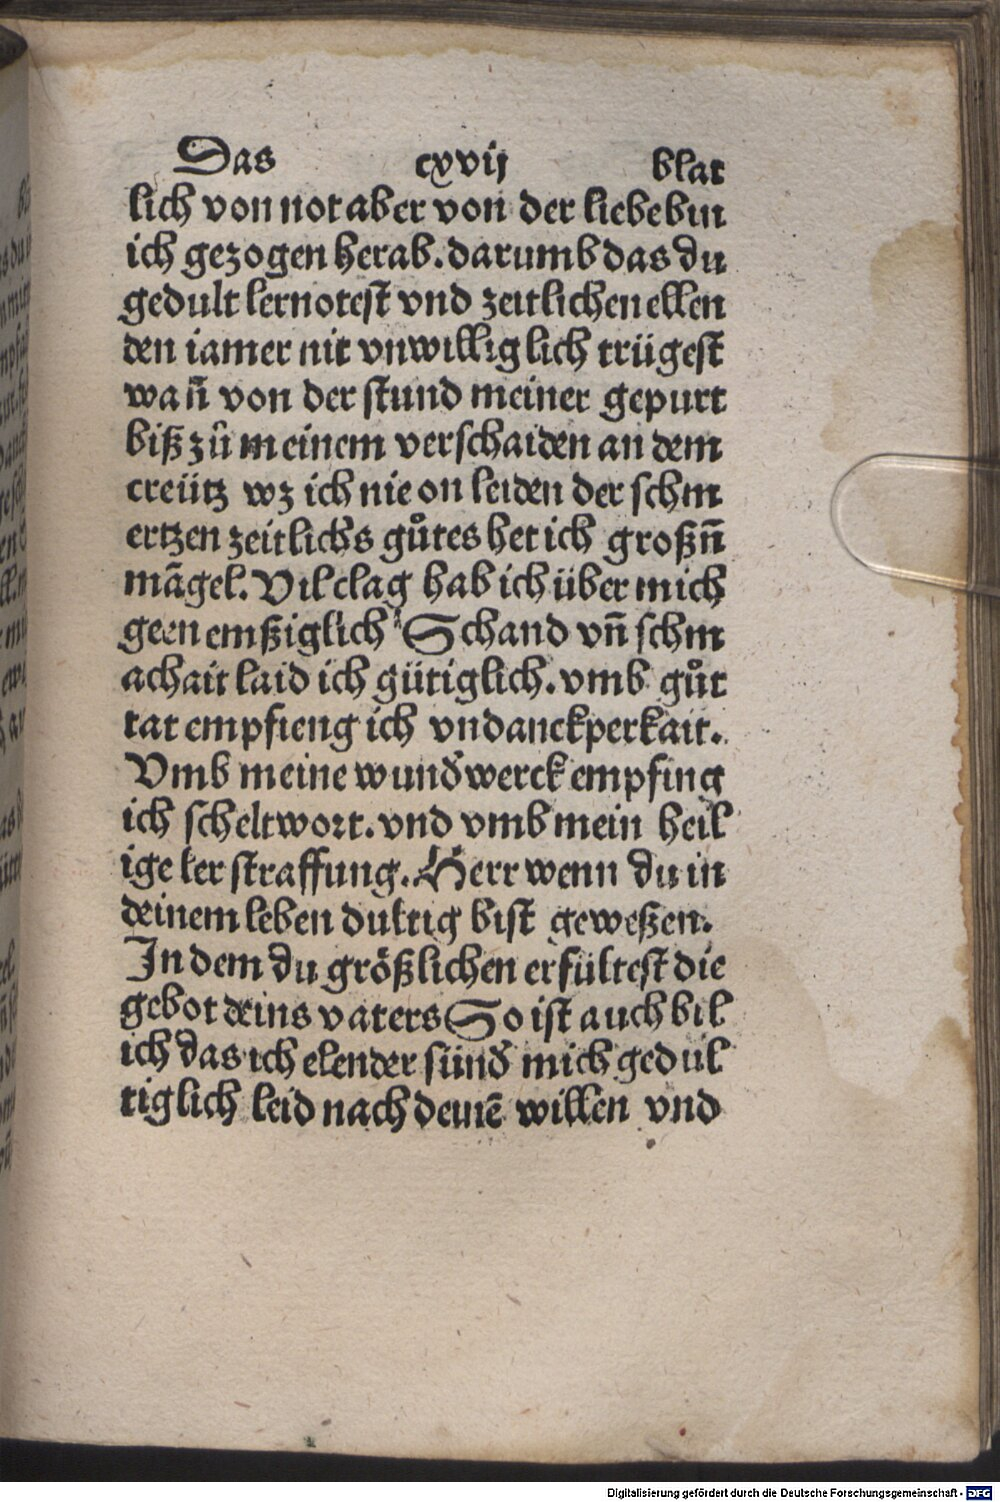 Das cxvij blat
lich von not aber von der liebe bin
ich gezogen herab. darumb das du
gedult lernotest vnd zeitlichen ellen
den iamer nit vnwilliglich trügest
wañ von der stund meiner gepurt
biß zů meinem verschaiden an dem
creütz wz ich nie on leiden der schm
ertzen zeitlichs gůtes het ich großñ
mãgel. Vil clag hab ich über mich
geen emßiglich Schand vñ schm
achait laid ich gütiglich. vmb gůt
tat empfieng ich vndanckperkait.
Vmb meine wunď werck empfing
ich scheltwort. vnd vmb mein heil
ige ler straffung. Herr wenn du in
deinem leben dultig bist geweßen.
In dem du größlichen erfültest die
gebot deins vaters So ist auch bil
ich das ich elender sünď mich gedul
tiglich leid nach deinē willen vnd
Digitalisierung gefördert durch die Deutsche Forschungsgemeinschaft - DFG